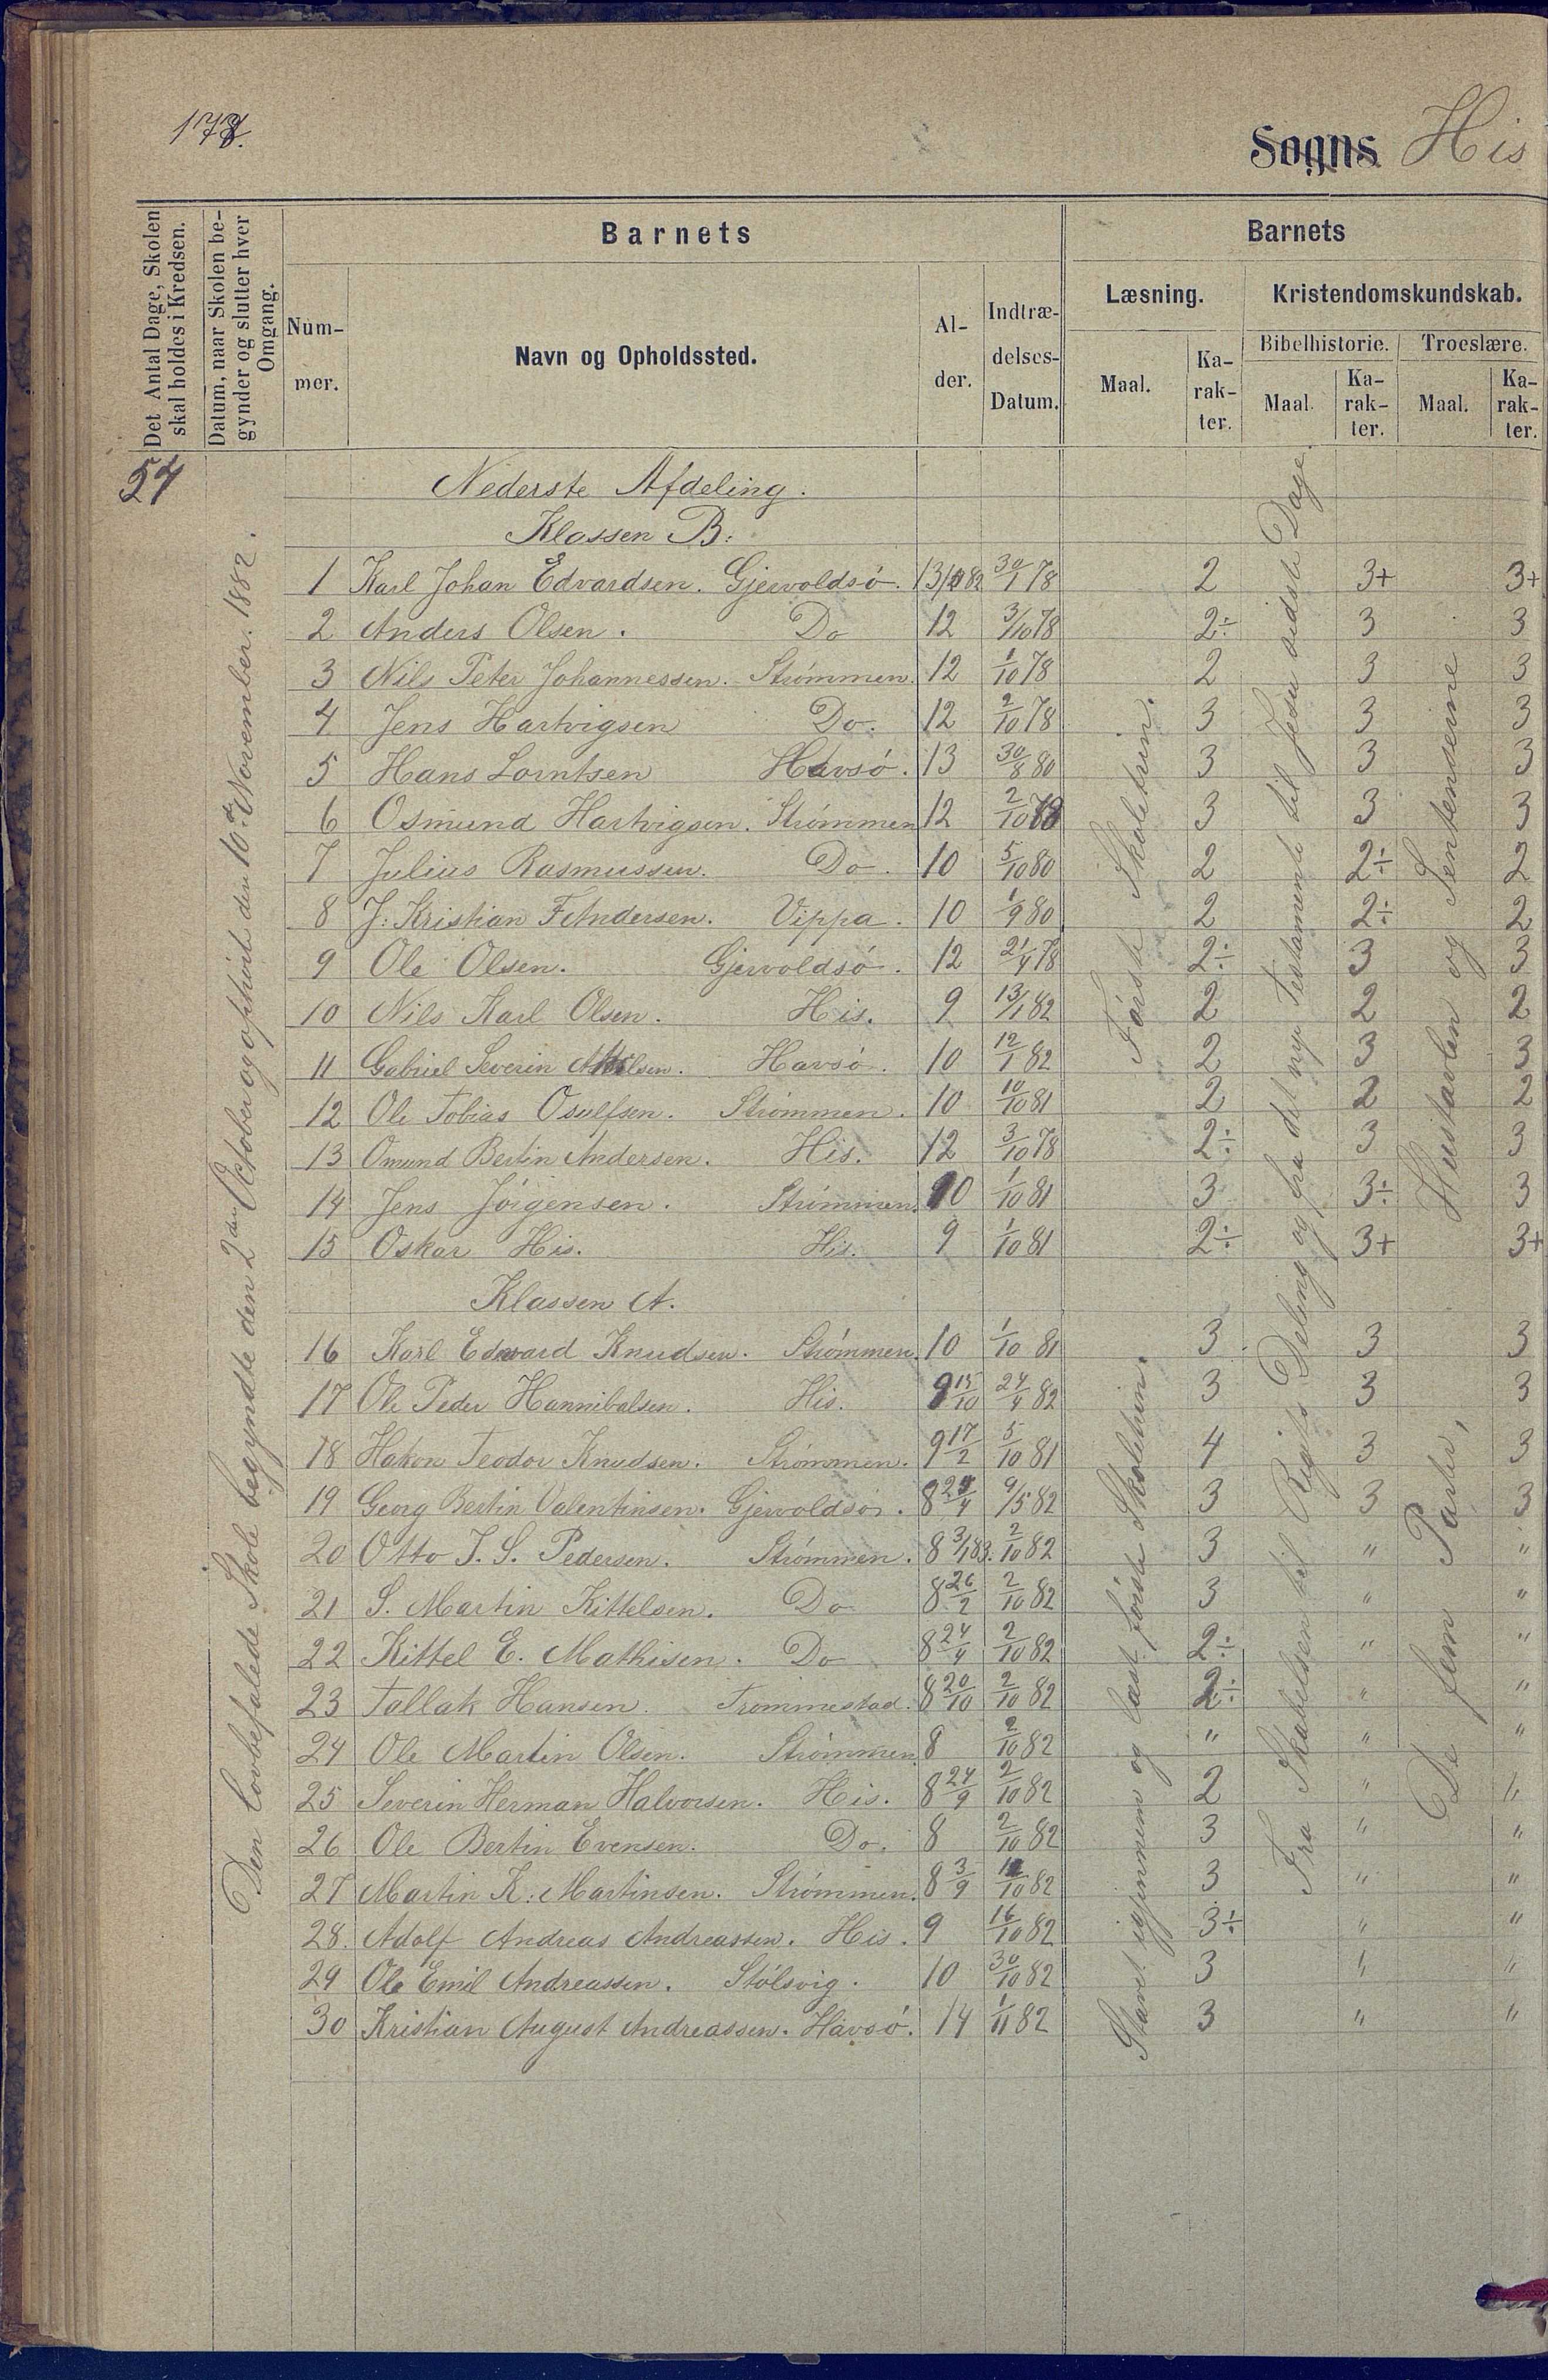 178.
Sogns His
Det Antal Dage, Skolen skal holdes i Kredsen.
Datum, naar Skolen begynder og slutter hver Omgang.
Barnets
Barnets
Num-mer.
Navn og Opholdssted.
Al-der.
Indtræ-delses-Datum.
Læsning.
Kristendomskundskab.
Bibelhistorie.
Troeslære.
Maal.
Ka-rak-ter.
Maal.
Ka-rak-ter.
Maal.
Ka-rak-ter.
54
Den lovbefalede Skole begyndte den 2den October og ophört den 10de November 1882.
Nederste Afdeling.
Klassen B:
1 Karl Johan Edvardsen. Gjervoldsö. 30/1 78 2 3+ 3+
2 Anders Olsen. Do 12 3/10 78 2÷ 3 3
3 Nils Peter Johannessen. Strömmen. 12 1/10 78 2 3 3
4 Jens Hartvigsen Do. 12 2/10 78 3 3 3
5 Hans Lorntsen Havsö. 13 30/8 80 3 3 3
6 Osmund Hartvigsen. Strömmen 12 2/10 78 3 3 3
7 Julius Rasmussen. Do. 10 5/10 80 2 2÷ 2
8 J: Kristian F Andersen. Vippa. 10 1/9 80 2 2÷ 2
9 Ole Olsen. Gjervoldsö. 12 21/4 78 2÷ 3 3
10 Nils Karl Olsen. His. 9 13/1 82 2 2 2
11 Gabriel Severin Havsö. 10 12/1 82 2 3 3
12 Ole Tobias Osulfsen. Strömmen. 10 10/10 81 2 2 2
13 Omund Bertin Andersen. His. 12 3/10 78 2÷ 3 3
14 Jens Jörgensen. Strömmen. 10 1/10 81 3 3÷ 3
15 Oskar His. His. 9 1/10 81 2÷ 3+ 3+
Förste Skoletrin.
Klassen A.
16 Karl Edward Knudsen. Strömmen. 10 1/10 81 3 3 3
17 Ole Peder Hannibalsen. His. 9 15/10 24/4 82 3 3 3
18 Hakon Teodor Knudsen. Strömmen. 9 17/2 5/10 81 4 3 3
19 Georg Bertin Valentinsen. Gjervoldsö. 8 9/5 82 3 3 3
20 Otto J. S. Pedersen. Strömmen. 8 3/1 83. 2/10 82 3 " "
21 S. Martin Kittelsen. Do 8 26/2 2/10 82 3 " "
22 Kittel E. Mathisen. Do 8 24/4 2/10 82 2÷ " "
23 Tallak Hansen. Trommestad. 8 20/10 2/10 82 2÷ " "
24 Ole Martin Olsen. Strömmen 8 2/10 82 " " "
25 Severin Herman Halvorsen. His. 8 24/9 2/10 82 2 " "
26 Ole Bertin Evensen. Do. 8 2/10 82 3 " "
27 Martin K: Martinsen. Strömmen. 8 3/9 82 3 " "
28. Adolf Andreas Andreassen. His. 9 16/10 82 3÷ " "
29 Ole Emil Andreassen. Stölsvig. 10 30/10 82 3 " "
30 Kristian August Andreassen. Havsö. 14 1/11 82 3 " "
Stavet igjennem og læst förste Skoletrin.
Fra Skabelsen til Rigets Deling og fra det nye Testamente til Jesu sidste Dage.
De fem Parter, Hustavlen og Sentenserne